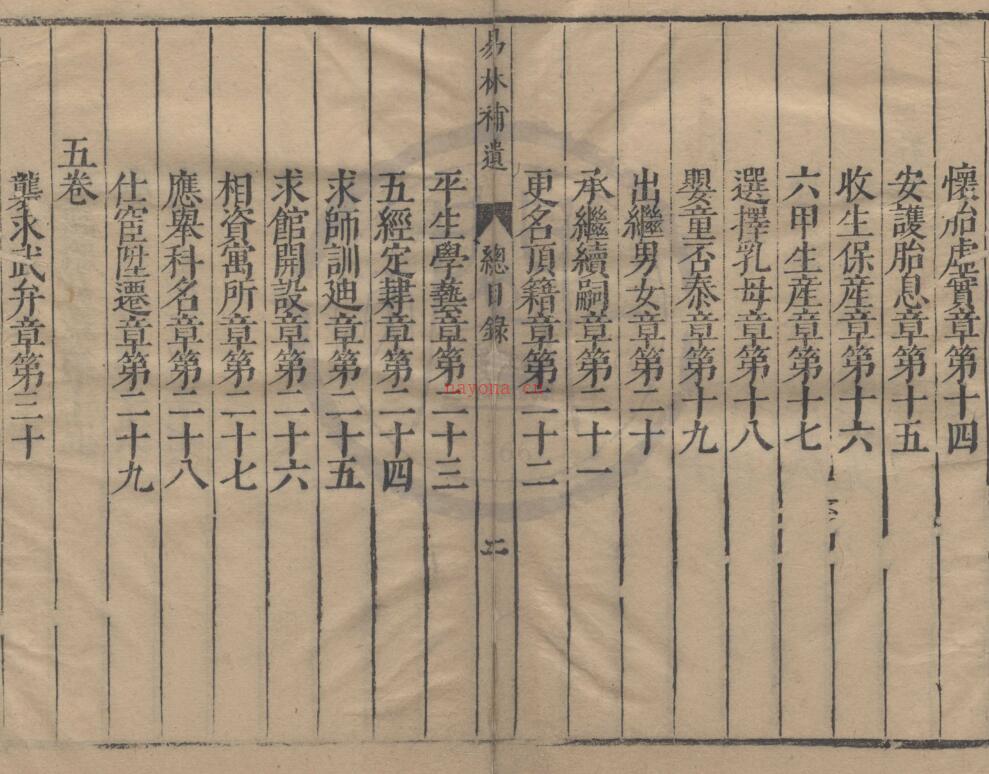 懷胎虛實章第十四
安護胎息章第十五
收生保産章第十六
六甲生産章第十七
選擇乳母章第十八
嬰童否泰章第十九
出繼男女章第二十
承繼續嗣章第二十一
更名頂籍章第二十二
易林補遺
總目錄
二
平生學藝章第二十三
五經定肄章第二十四
求師訓廸章第二十五
求館開設章第二十六
相資寓所章第二十七
應舉科名章第二十八
仕宦陞遷章第二十九
五卷
襲求武弁章第三十
nayona.cn